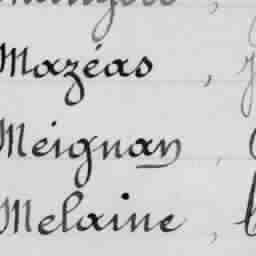 Mazéas,
Meignan,
Melaine,